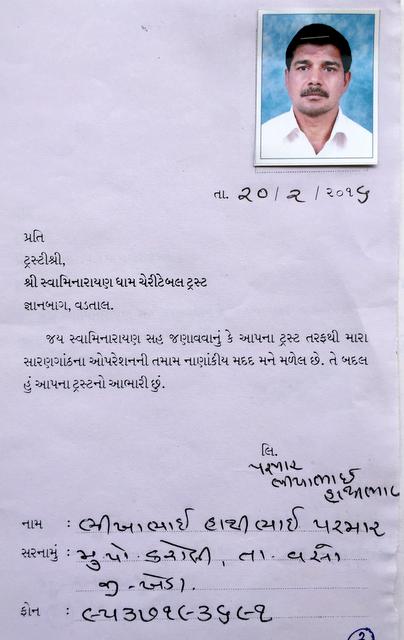 તા. ૨૦/૨/૨૦૧૬
પ્રતિ
ટ્રસ્ટીશ્રી,
શ્રી સ્વામિનારાયણ ધામ ચેરીટેબલ ટ્રસ્ટ
જ્ઞાનબાગ, વડતાલ.
જય સ્વામિનારાયણ સહ જણાવવાનું કે આપના ટ્રસ્ટ તરફથી મારા
સારણગાંઠના ઓપરેશનની તમામ નાણાંકીય મદદ મને મળેલ છે. તે બદલ
હું આપના ટ્રસ્ટનો આભારી છું.
લિ.
પરમાર
ભીખાભાઈ
હાથીભાઈ
નામ : ભીખાભાઈ હાથીભાઈ પરમાર
સરનામું : મુ.પો. કરોલી, તા. વસો
જી-ખેડા.
ફોન : ૯૫૩૭૧૯૩૬૯૧